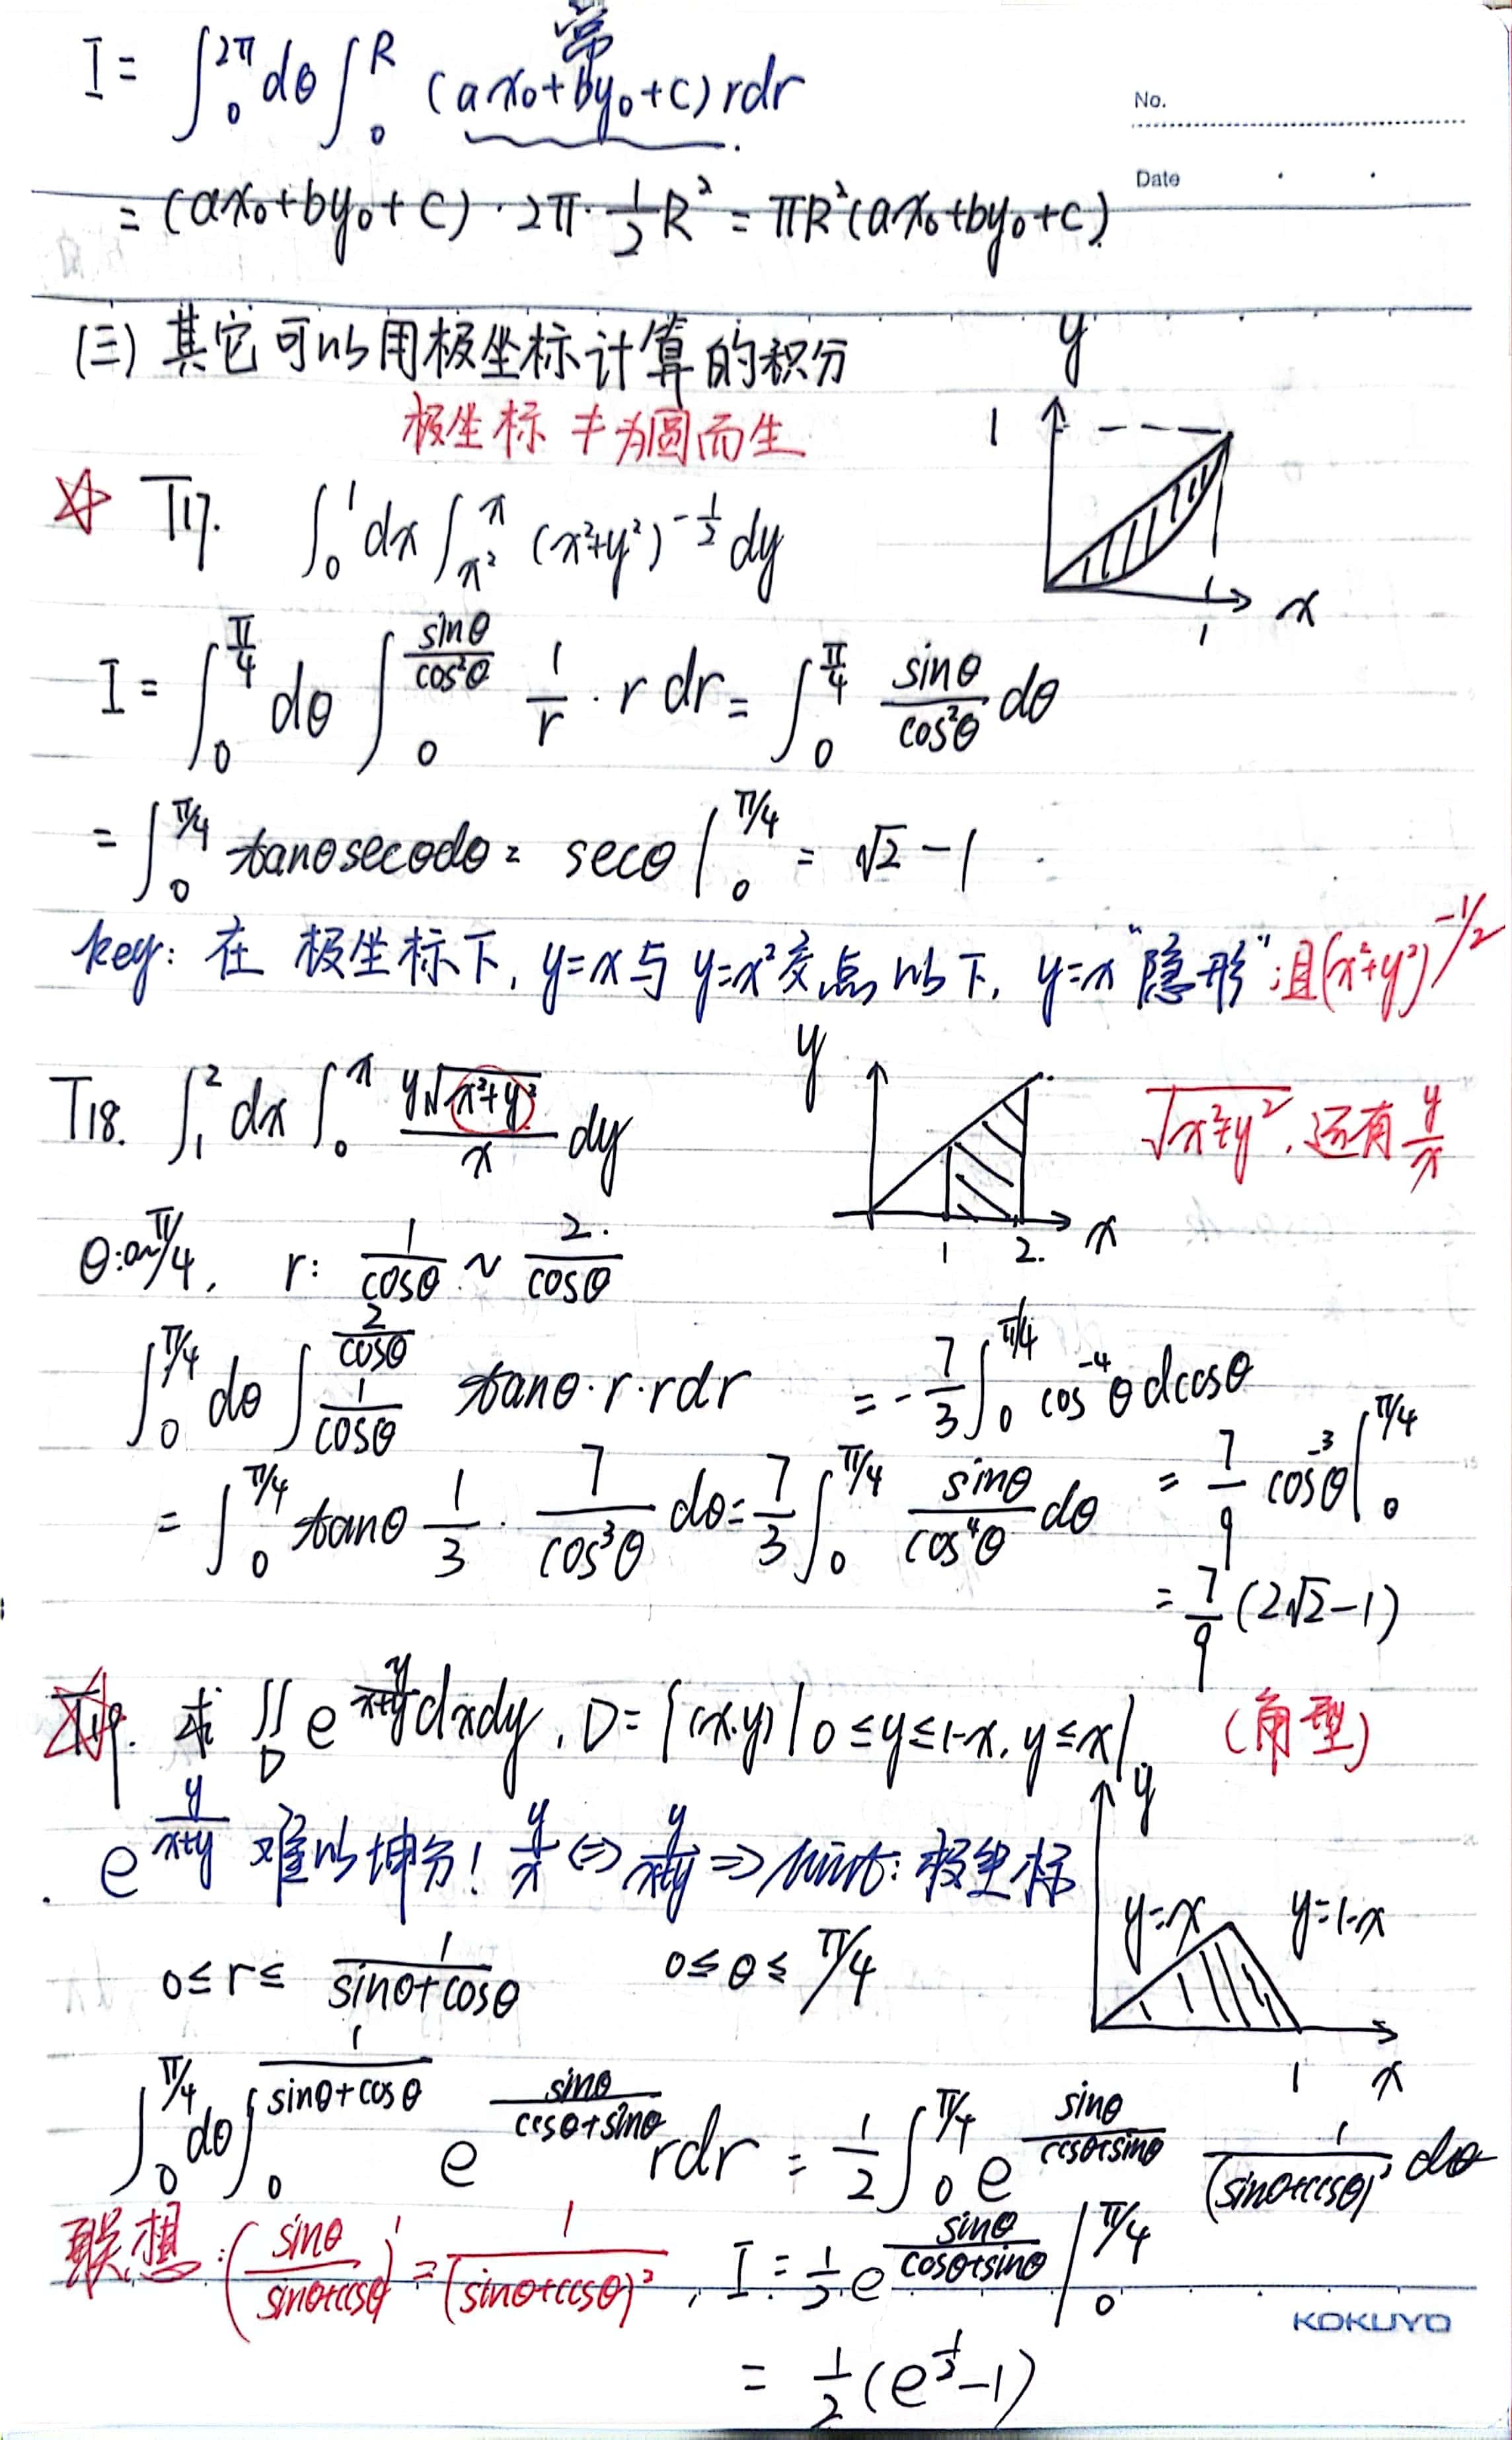 I = ∫₀^{2π} dθ ∫₀^R (ax₀+by₀+c) rdr
常
No.
Date
= (ax₀+by₀+c) · 2π · 1/2 R² = πR²(ax₀+by₀+c)
(三) 其它可以用极坐标计算的积分
极坐标 ≠ 为圆而生
y
1
1
x
☆ T17. ∫₀¹ dx ∫_{x²}^{x} (x²+y²)^{-1/2} dy
I = ∫₀^{π/4} dθ ∫₀^{sinθ/cos²θ} 1/r · r dr = ∫₀^{π/4} sinθ/cos²θ dθ
= ∫₀^{π/4} tanθsecθdθ = secθ |₀^{π/4} = √2 - 1
key: 在 极坐标下, y=x 与 y=x² 交点以下, y=x "隐形"; 且(x²+y²)^{-1/2}
T18. ∫₁² dx ∫₀^x y√(x²+y²)/x dy
y
1
2.
x
√(x²+y²), 还有 y/x
θ: 0~π/4, r: 1/cosθ ~ 2/cosθ
∫₀^{π/4} dθ ∫_{1/cosθ}^{2/cosθ} tanθ · r · rdr
= ∫₀^{π/4} tanθ 1/3 · 7/cos³θ dθ = 7/3 ∫₀^{π/4} sinθ/cos⁴θ dθ
= -7/3 ∫₀^{π/4} cos⁻⁴θ dcosθ
= 7/9 cos⁻³θ |₀^{π/4}
= 7/9 (2√2-1)
☆ T19. 求 ∬_D e^{y/(x+y)} dxdy, D = {(x,y) | 0≤y≤1-x, y≤x}
(角型)
e^{y/(x+y)} 难以积分! y/x ⇔ y/(x+y) ⇒ hint: 极坐标
y
y=x
y=1-x
1
x
0≤r≤ 1/(sinθ+cosθ) 0≤θ≤π/4
∫₀^{π/4} dθ ∫₀^{1/(sinθ+cosθ)} e^{sinθ/(cosθ+sinθ)} rdr = 1/2 ∫₀^{π/4} e^{sinθ/(cosθ+sinθ)} 1/(sinθ+cosθ)² dθ
联想: (sinθ/(sinθ+cosθ))' = 1/(sinθ+cosθ)², I = 1/2 e^{sinθ/(cosθ+sinθ)} |₀^{π/4}
= 1/2 (e^{1/2}-1)
KOKUYO